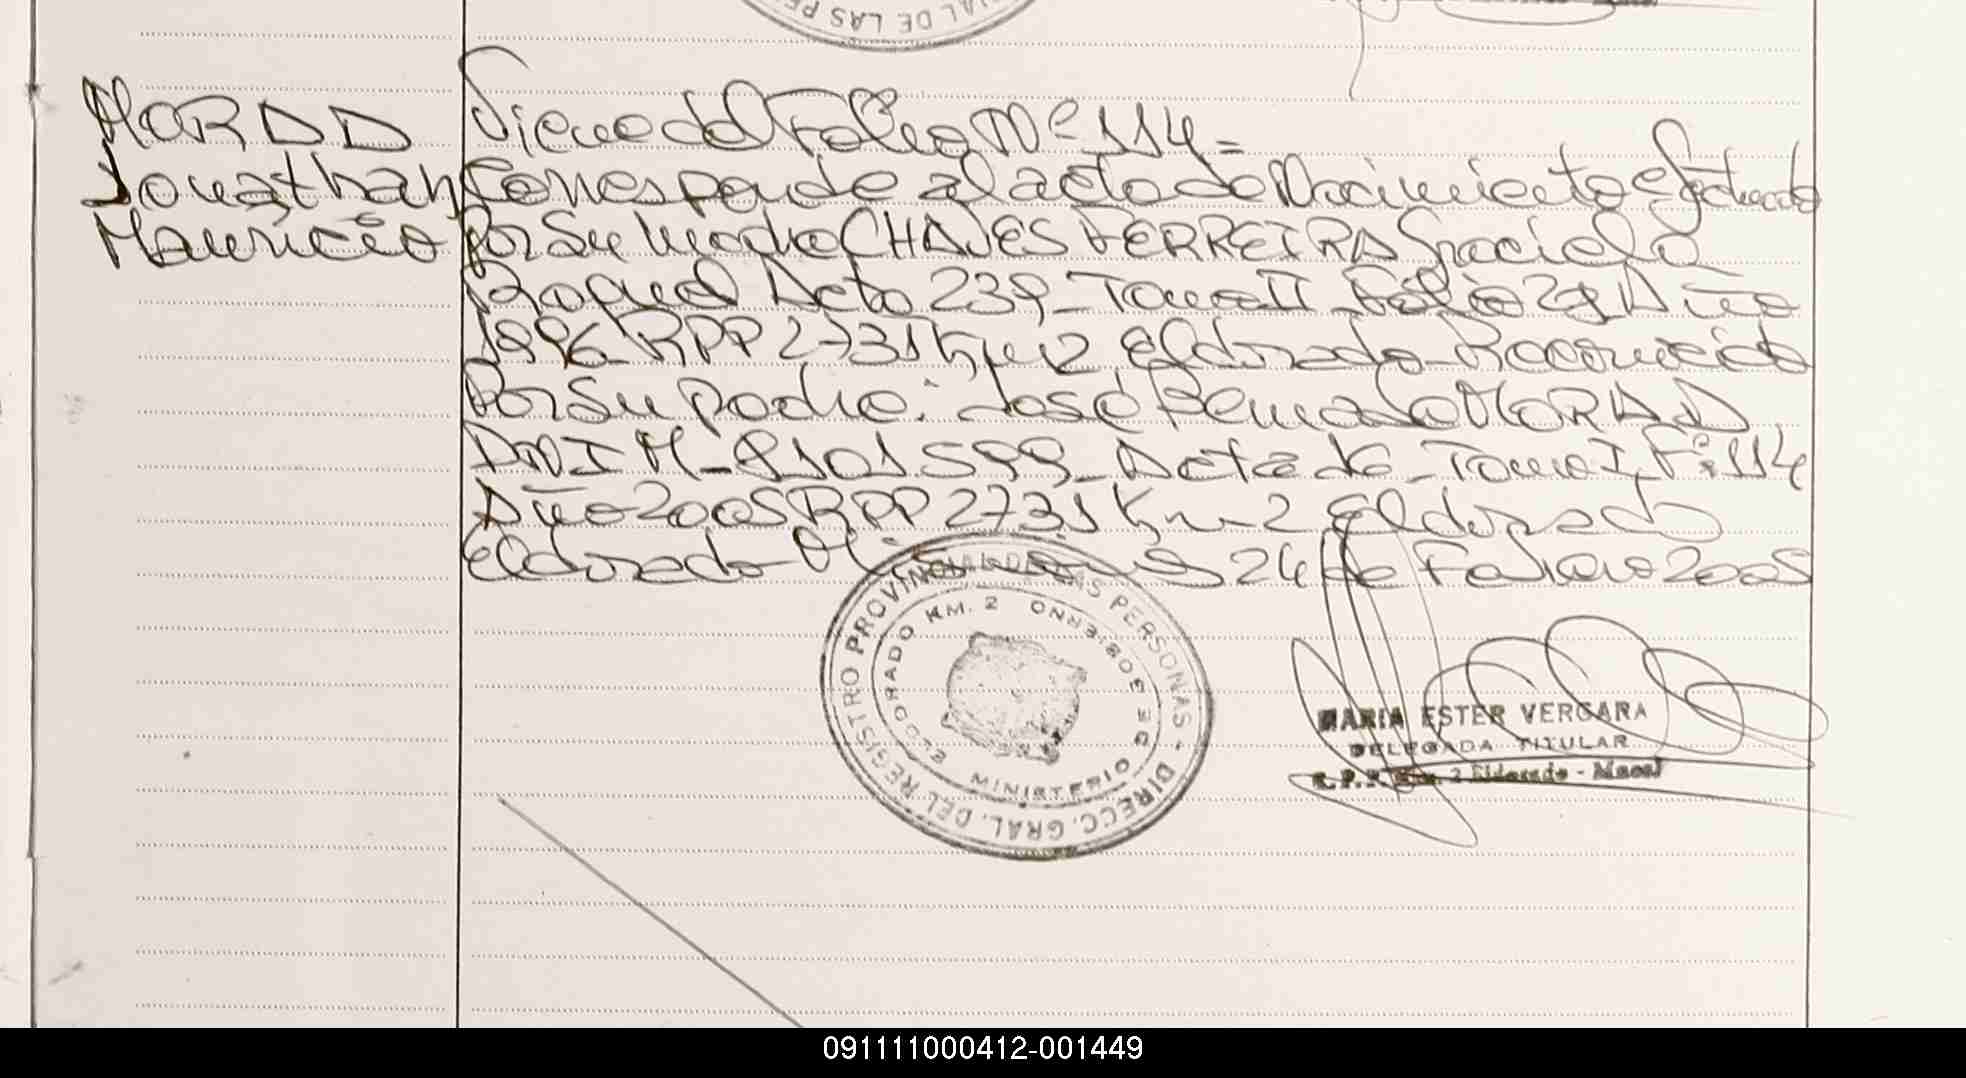 IAL DE LAS PE
MORAD
Jonathan
Mauricio
Viene del Folio Nº 114=
Corresponde al acta de Nacimiento efectuada
Por Su Madre CHAVES FERREIRA Graciela
Raquel Acta 239_Tomo II_Folio 29 Año
1996_RPP 2731 Km 2 Eldorado_Reconocido
Por Su padre: José Bernardo MORAD
DNI M_8101.599_Acta de_Tomo I Fº 114
Año 2005 RPP 2731 Km-2 Eldorado
Eldorado Misiones 24 de Febrero 2005
DIRECC. GRAL. DEL REGISTRO PROVINCIAL DE LAS PERSONAS -
MINISTERIO DE GOBIERNO
ELDORADO KM. 2
MARIA ESTER VERGARA
DELEGADA TITULAR
R.P.P. Km. 2 Eldorado - Mnes
091111000412-001449